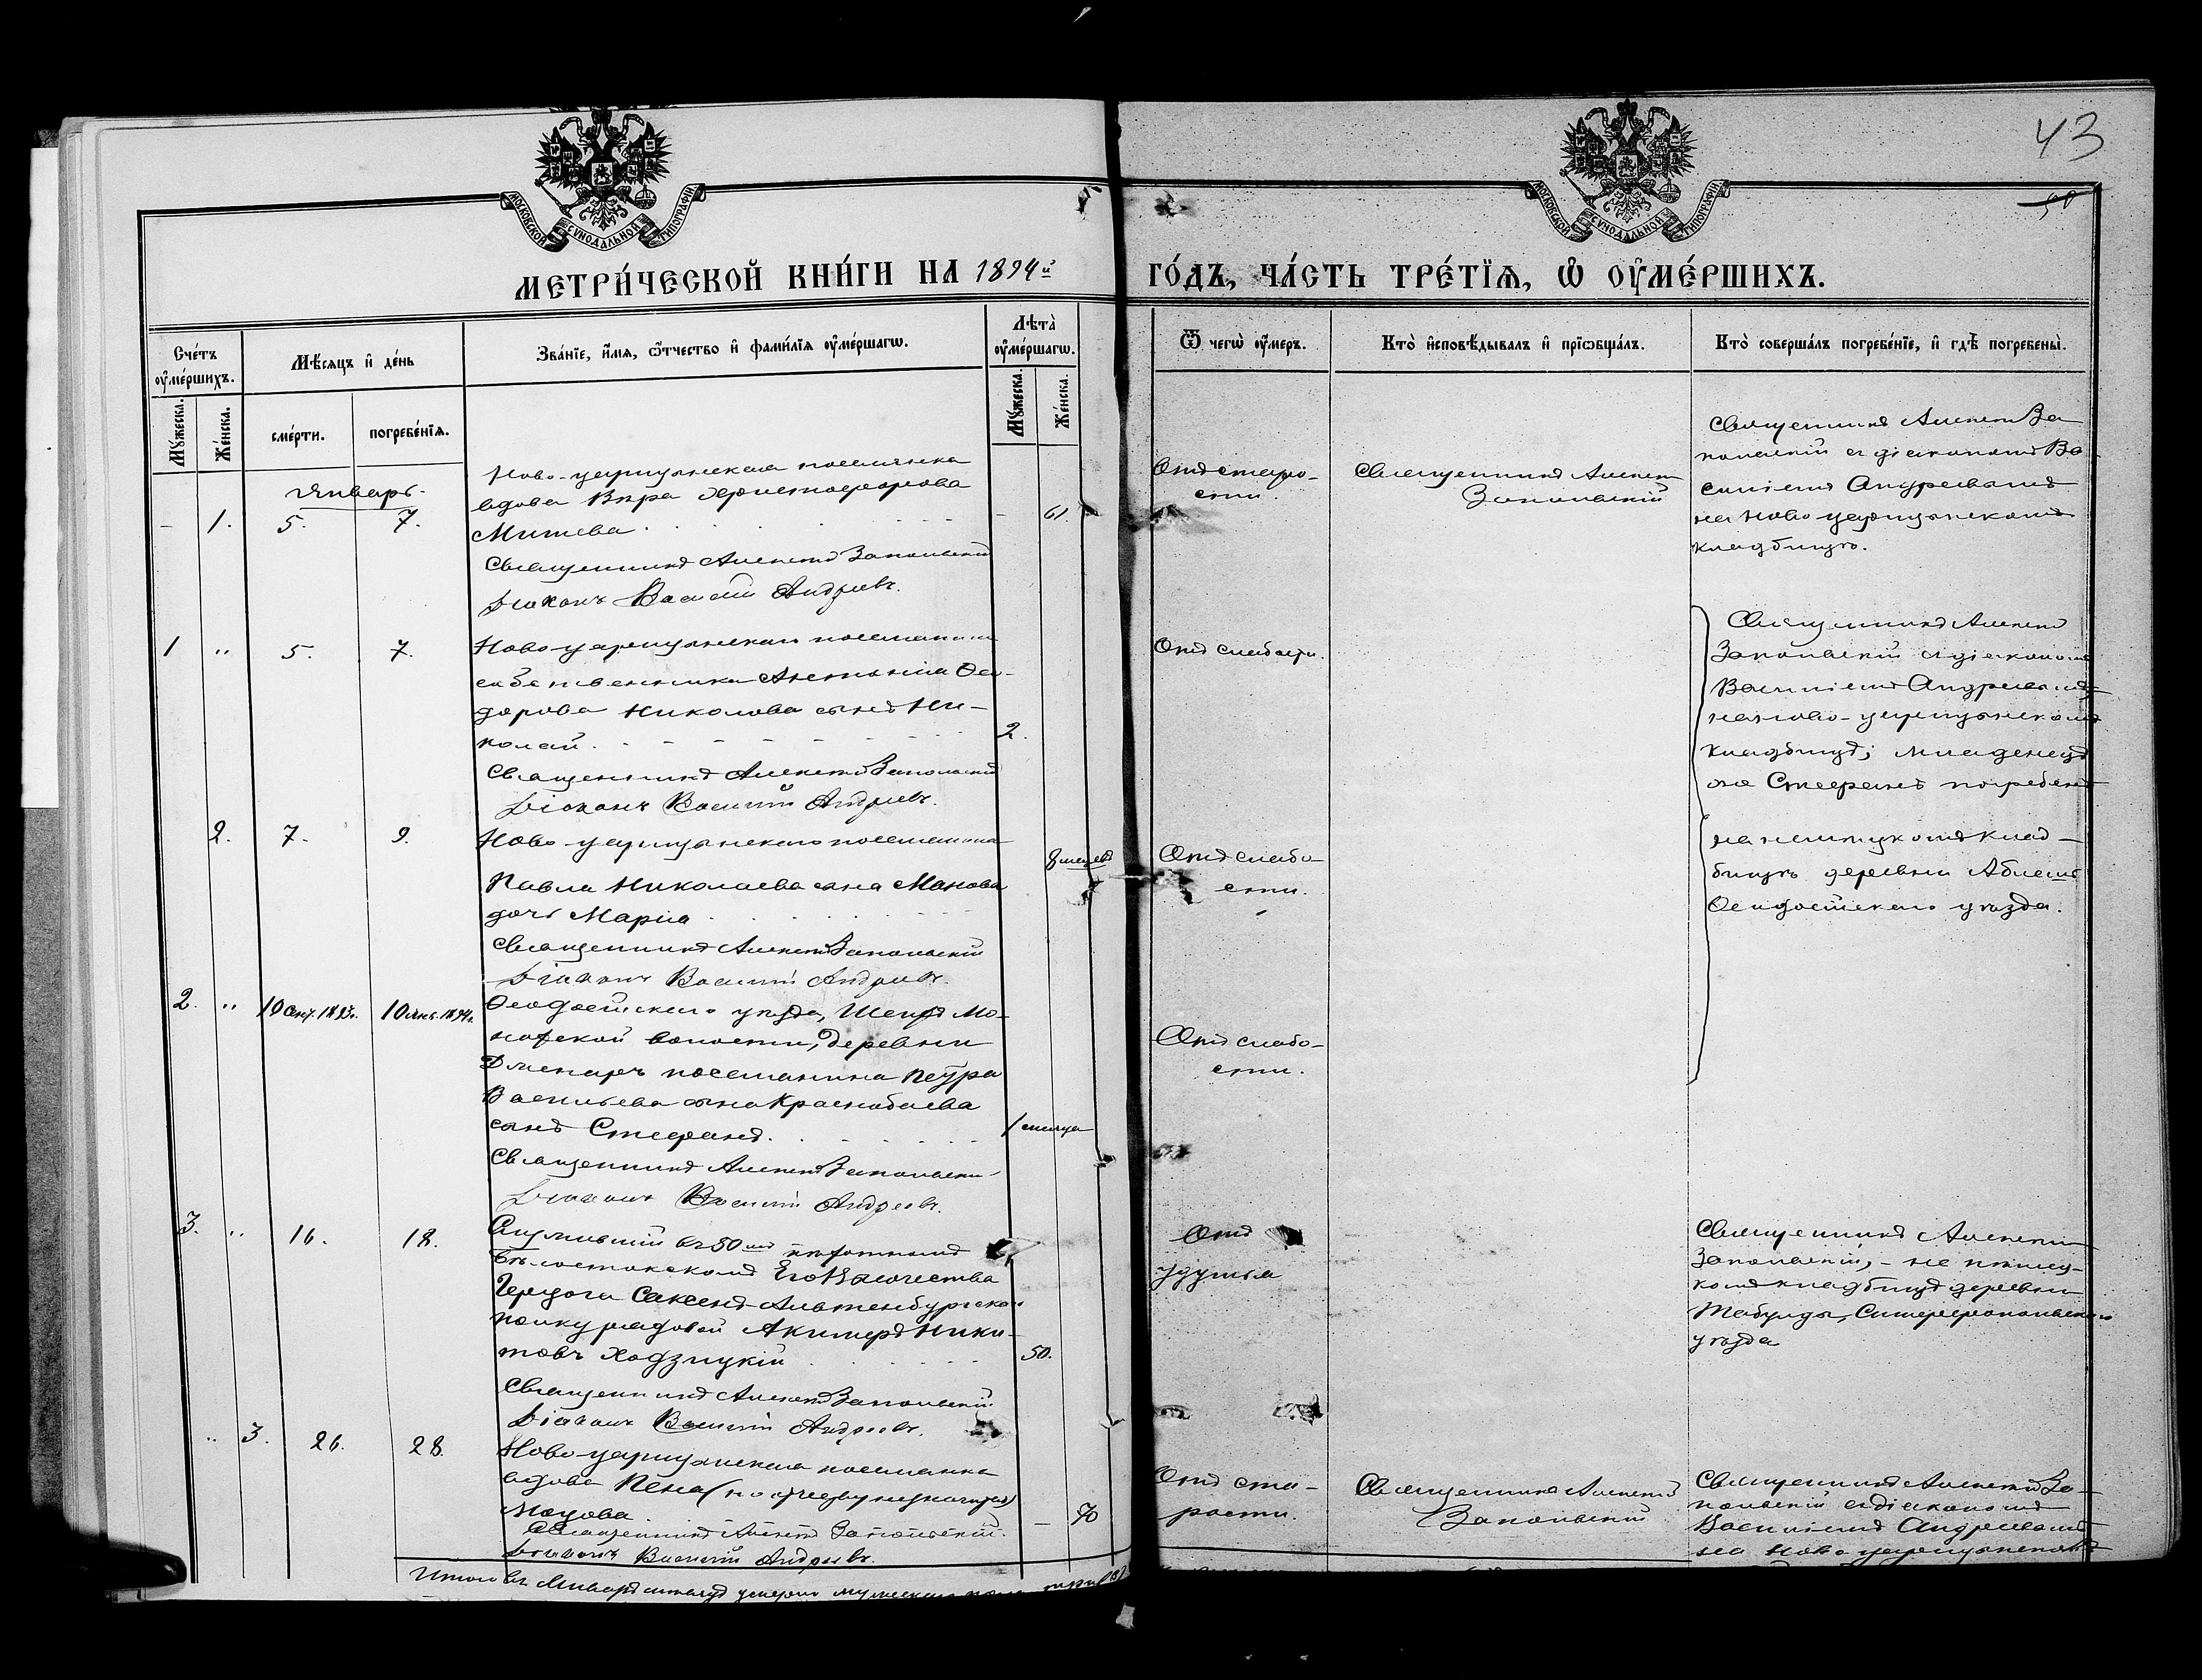 43
МОСКОВСКОЙ СУНОДАЛЬНОЙ ТИПОГРАФІИ
МОСКОВСКОЙ СУНОДАЛЬНОЙ ТИПОГРАФІИ
МЕТРИ́ЧЕСКОЙ КНИ́ГИ НА 1894й
ГО́ДЪ, ЧА́СТЬ ТРЕ́ТЇѦ, Ѡ҆ ОУ҆МЕ́РШИХЪ.
Сче́тъ оу҆ме́ршихъ.
Мѣ́сѧцъ и҆ де́нь
Зва́нїе, и҆́мѧ, ѻ҆́тчество и҆ фамѝлїѧ оу҆ме́ршагѡ.
Лѣ́та оу҆ме́ршагѡ.
Ѿ чегѡ̀ оу҆́меръ.
Кто̀ и҆сповѣ́дывалъ и҆ прїѡбща́лъ.
Кто̀ соверша́лъ погребе́нїе, и҆ гдѣ̀ погребены̀.
Му́жеска.
Же́нска.
сме́рти.
погребе́нїѧ.
Му́жеска.
Же́нска.
Январь.
– 1. 5. 7.
Ново-царицынская поселянка
вдова Вѣра Христофорова
Митева
– 61.
Священникъ Алексій Запольскій
Діаконъ Василій Андреевъ.
Отъ старо-
сти.
Священникъ Алексій
Запольскій
Священникъ Алексій За
польскій съ діакономъ Ва
силіемъ Андреевымъ
на Ново царицынскомъ
кладбищѣ.
1 " 5. 7.
Ново-царицынскаго поселянина
собственника Антонія Ѳео-
дорова Николова сынъ Ни-
колай.
2.
Священникъ Алексій Запольскій
Діаконъ Василій Андреевъ.
Отъ слабости.
Священникъ Алексій
Запольскій съ діакономъ
Василіемъ Андреевымъ
на ново-царицынскомъ
кладбищѣ; младенецъ
же Стефанъ погребенъ
на кладбищѣ деревни
Ѳеодосійскаго уѣзда.
2. 7. 9.
Ново-царицынскаго поселянина
Павла Николаева сына Манова
дочь Марія
Священникъ Алексій Запольскій
Діаконъ Василій Андреевъ.
Отъ слабо-
сти.
2. " 10 1893. 10 Янв. 1894.
Ѳеодосійскаго уѣзда, Шейхъ-Мо-
нахской волости, деревни
поселянина Петра
Васильева сына Краснобаева
сынъ Стефанъ.
1 мѣсяца
Священникъ Алексій Запольскій
Діаконъ Василій Андреевъ.
Отъ слабо-
сти.
3. " 16. 18.
Служившій въ 50мъ пѣхотномъ
Бѣлостокскомъ Его Высочества
Герцога Саксенъ-Альтенбургскаго
полку рядовой Ники-
товъ Ходзицкій
50.
Священникъ Алексій Запольскій
Діаконъ Василій Андреевъ.
Отъ
удушья
Священникъ Алексій
Запольскій, – на нѣмец-
комъ кладбищѣ деревни
Табулды, Симферопольскаго
уѣзда
" 3. 26. 28.
Ново-царицынская поселянка
вдова Пена (по отчеству незначится)
Моцова
– 70
Священникъ Алексій Запольскій.
Діаконъ Василій Андреевъ.
Отъ ста-
рости.
Священникъ Алексій
Запольскій
Священникъ Алексій За-
польскій съ діакономъ
Василіемъ Андреевымъ
на Ново царицынскомъ
Итого въ Январѣ мѣсяцѣ умерло мужескаго пола три